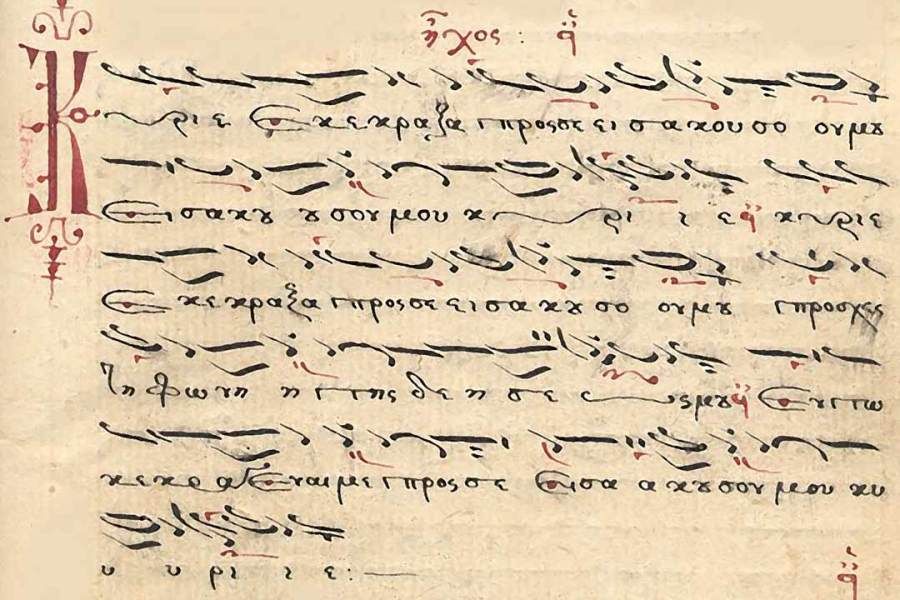 ἦχος: ᾳ
Κύριε Εκεκραξα προςσε εισακουσο ουμου
Εισακου ουσουμου κυρι ι ε κυριε
Εκεκραξα προςσε εισακουσο ουμου προσχες
τη φωνη η τηςδε η σε ε ωςμου Εντω
κεκραγεναιμε προςσε Εισα ακουσουμου κυ
υ υ ρι ι ε: